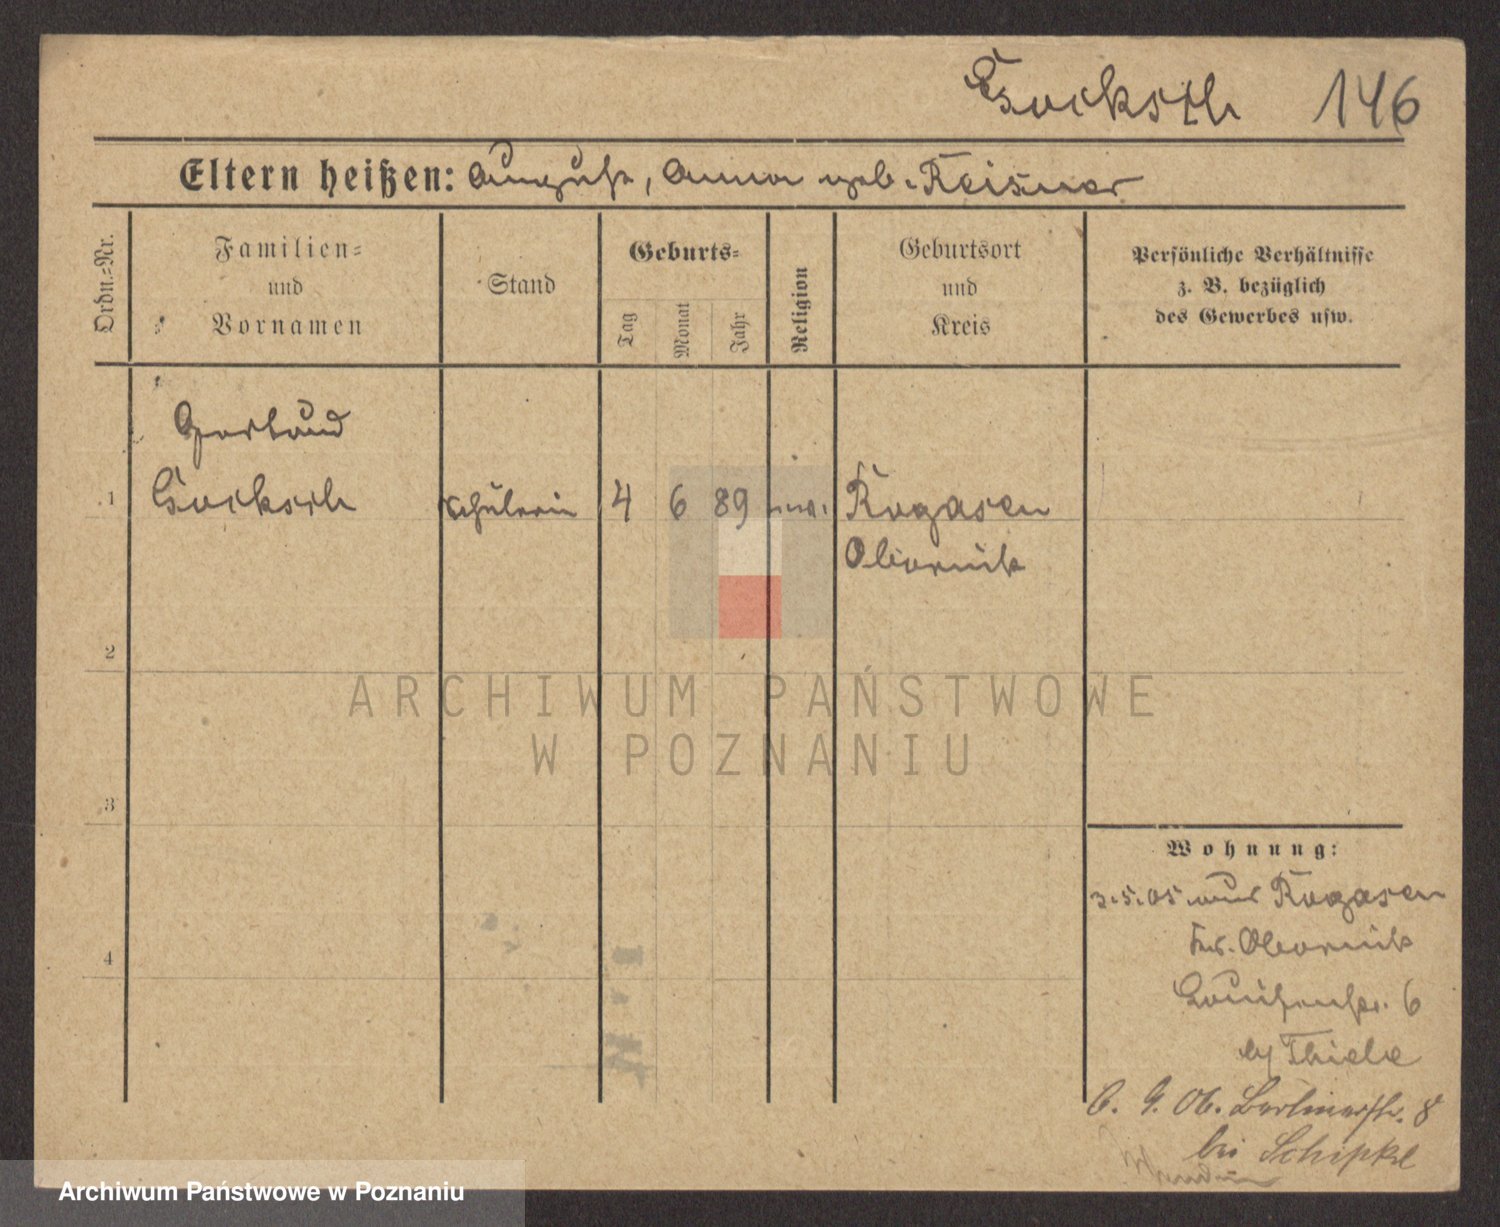 146
Eltern heißen: August, Anna geb. Reisner
Ordn.=Nr.
Familien=
und
Vornamen
Stand
Geburts=
Tag
Monat
Jahr
Religion
Geburtsort
und
Kreis
Persönliche Verhältnisse
z. B. bezüglich
des Gewerbes usw.
Gertrud
1
Schülerin
4
6
89
Rogasen
Obornik
2
ARCHIWUM PAŃSTWOWE
W POZNANIU
3
Wohnung:
3.5.05 aus Rogasen
Obornik
4
Louisenstr. 6
by Thiele
Berlinerstr. 8
bei Schipke
Archiwum Państwowe w Poznaniu